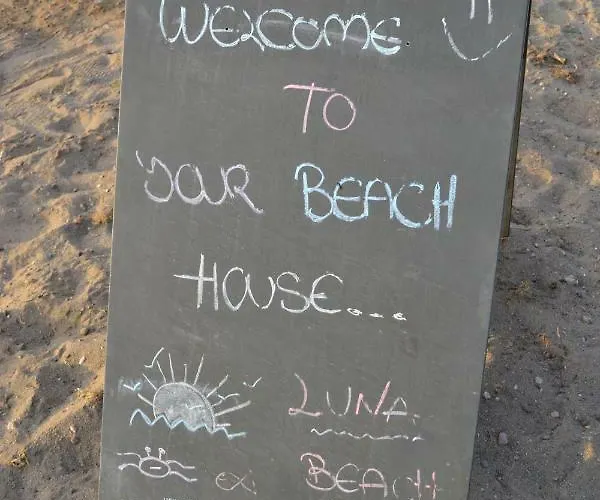 WELCOME
TO
YOUR BEACH
HOUSE...
LUNA
ex: BEACH